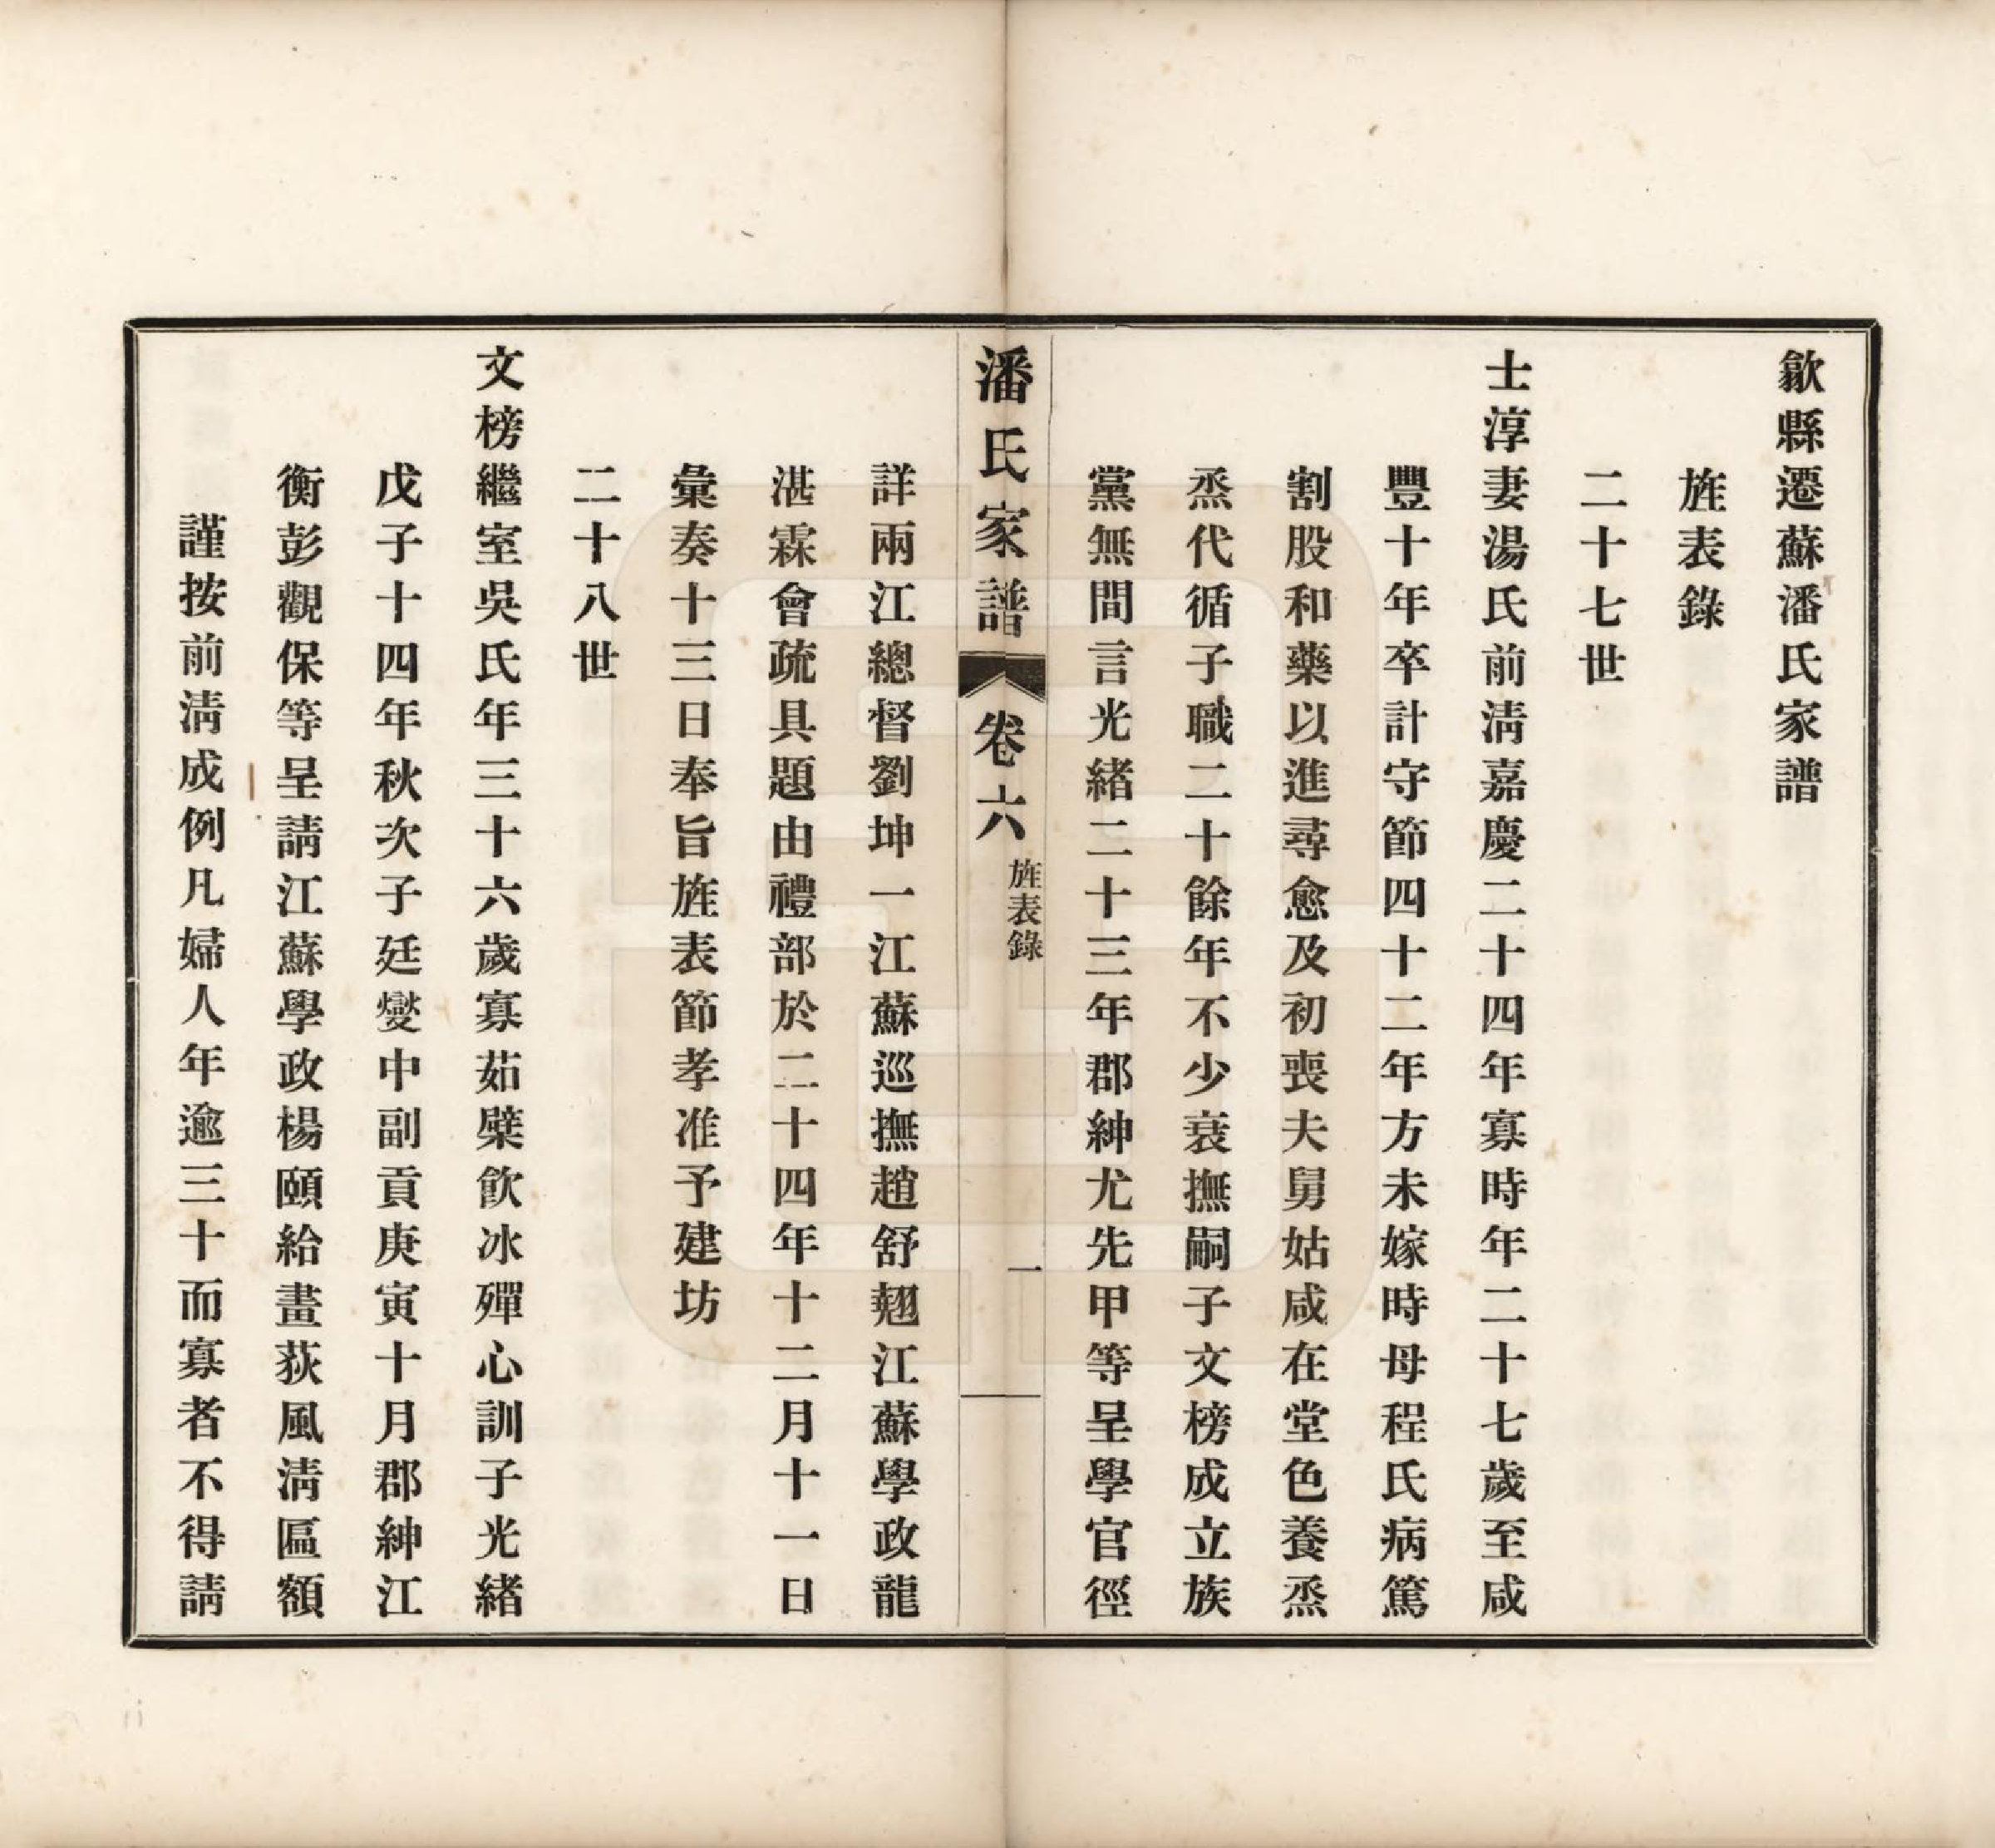 歙縣遷蘇潘氏家譜
旌表錄
二十七世
士淳妻湯氏前清嘉慶二十四年寡時年二十七歲至咸
豐十年卒計守節四十二年方未嫁時母程氏病篤
割股和藥以進尋愈及初喪夫舅姑咸在堂色養烝
烝代循子職二十餘年不少衰撫嗣子文榜成立族
黨無間言光緒二十三年郡紳尤先甲等呈學官徑
潘氏家譜 卷六 旌表錄 一
詳兩江總督劉坤一江蘇巡撫趙舒翹江蘇學政龍
湛霖會疏具題由禮部於二十四年十二月十一日
彙奏十三日奉旨旌表節孝准予建坊
二十八世
文榜繼室吳氏年三十六歲寡茹櫱飲冰殫心訓子光緒
戊子十四年秋次子廷燮中副貢庚寅十月郡紳江
衡彭觀保等呈請江蘇學政楊頤給畫荻風清匾額
謹按前清成例凡婦人年逾三十而寡者不得請